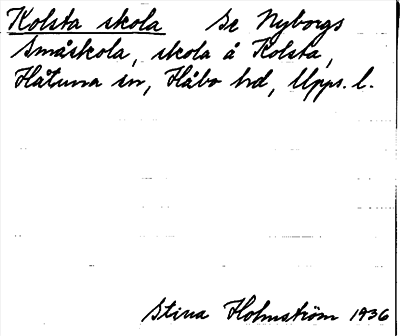 Kolsta skola Se Nyborgs
Småskola, skola å Kolsta,
Håtuna sn, Håbo hd, Upps. l.
Stina Holmström 1936